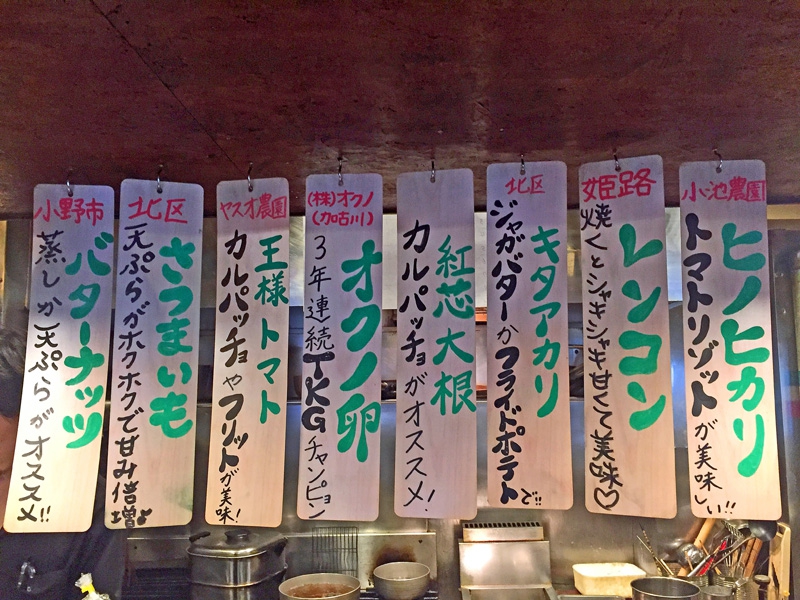 小野市
バターナッツ
蒸しか天ぷらがオススメ!!
北区
さつまいも
天ぷらがホクホクで甘み倍増♪
ヤスオ農園
王様トマト
カルパッチョやフリットが美味!
(株)オクノ
(加古川)
オクノ卵
3年連続TKGチャンピョン
紅芯大根
カルパッチョがオススメ!
北区
キタアカリ
ジャガバターかフライドポテトで!!
姫路
レンコン
焼くとシャキシャキ甘くて美味♡
小池農園
ヒノヒカリ
トマトリゾットが美味しい!!